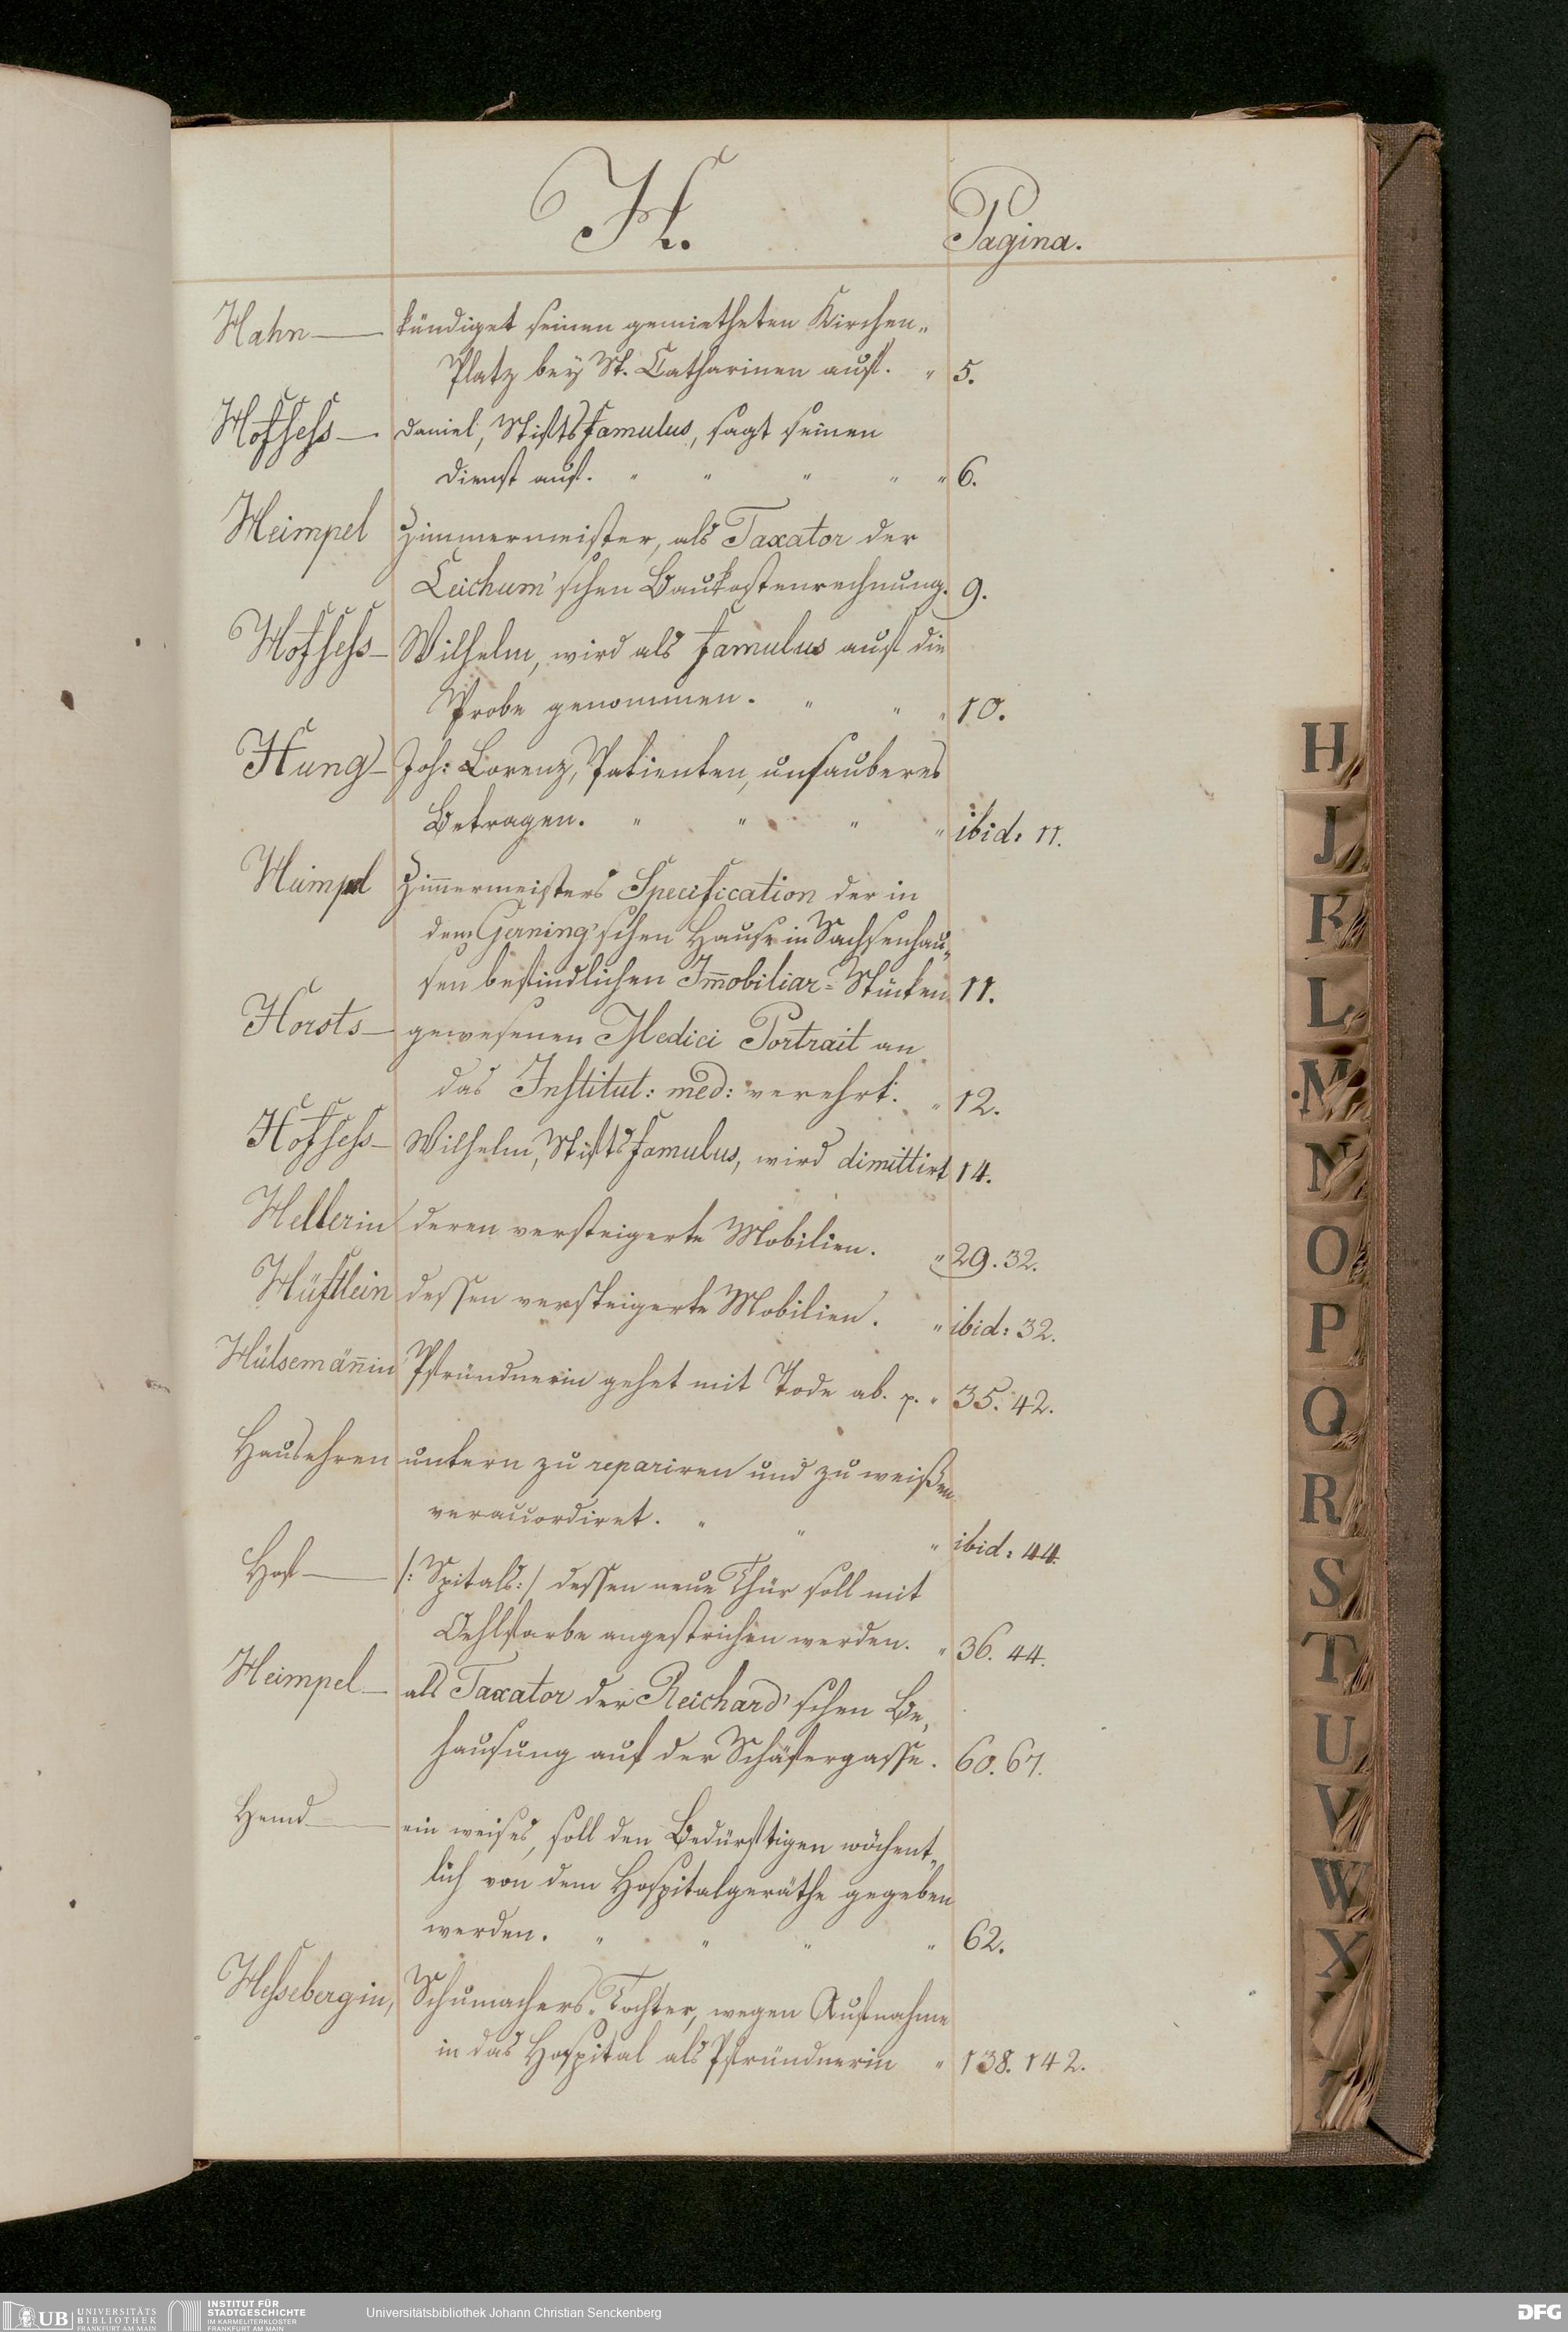 H. Pagina.
Hahn — kündiget seinen gemietheten Kirchen„
Platz bey St. Catharinen auf. „ 5.
Hofsess — Daniel, Stifts Famulus, sagt seinen
Dienst auf. „ „ „ „ „ 6.
Heimpel Zimmermeister, als Taxator der
Leichum'schen Baukostenrechnung. 9.
Hofsess — Wilhelm, wird als Famulus auf die
Probe genommen. „ „ „ 10.
Hung — Joh: Lorenz, Patienten, unsauberes
Betragen. „ „ „ „ ibid: 11.
Heimpel Zim̄ermeisters Specification der in
dem Gerning'schen Hause in Sachsenhau„
sen befindlichen Im̄obiliar=Stücken 11.
Horsts — gewesenen Medici Portrait an
das Institut: med: verehrt. „ 12.
Hofsess — Wilhelm, Stifts Famulus, wird dimittirt 14.
Hellerin deren versteigerte Mobilien. „ 29. 32.
Hüftlein dessen versteigerte Mobilien. „ ibid: 32.
Hülsemän̄in Pfründnerin gehet mit Tode ab. p. „ 35. 42.
Hausehren untern zu repariren und zu weißen
veraccordiret. „ „ „ ibid: 44.
Hof — /: Spitals :/ dessen neue Thür soll mit
Oehlfarbe angestrichen werden. „ 36. 44.
Heimpel — als Taxator der Reichard'schen Be„
hausung auf der Schäfergasse. 60. 67.
Hemd — ein weises, soll den Bedürftigen wöchent„
lich von dem Hospitalgeräthe gegeben
werden. „ „ „ „ 62.
Hessebergin, Schumachers=Tochter, wegen Aufnahme
in das Hospital als Pfründnerin „ 138. 142.
H
J
K
L
M
N
O
P
Q
R
S
T
U
V
W
X
UB UNIVERSITÄTS
BIBLIOTHEK
FRANKFURT AM MAIN
INSTITUT FÜR
STADTGESCHICHTE
IM KARMELITERKLOSTER
FRANKFURT AM MAIN
Universitätsbibliothek Johann Christian Senckenberg
DFG